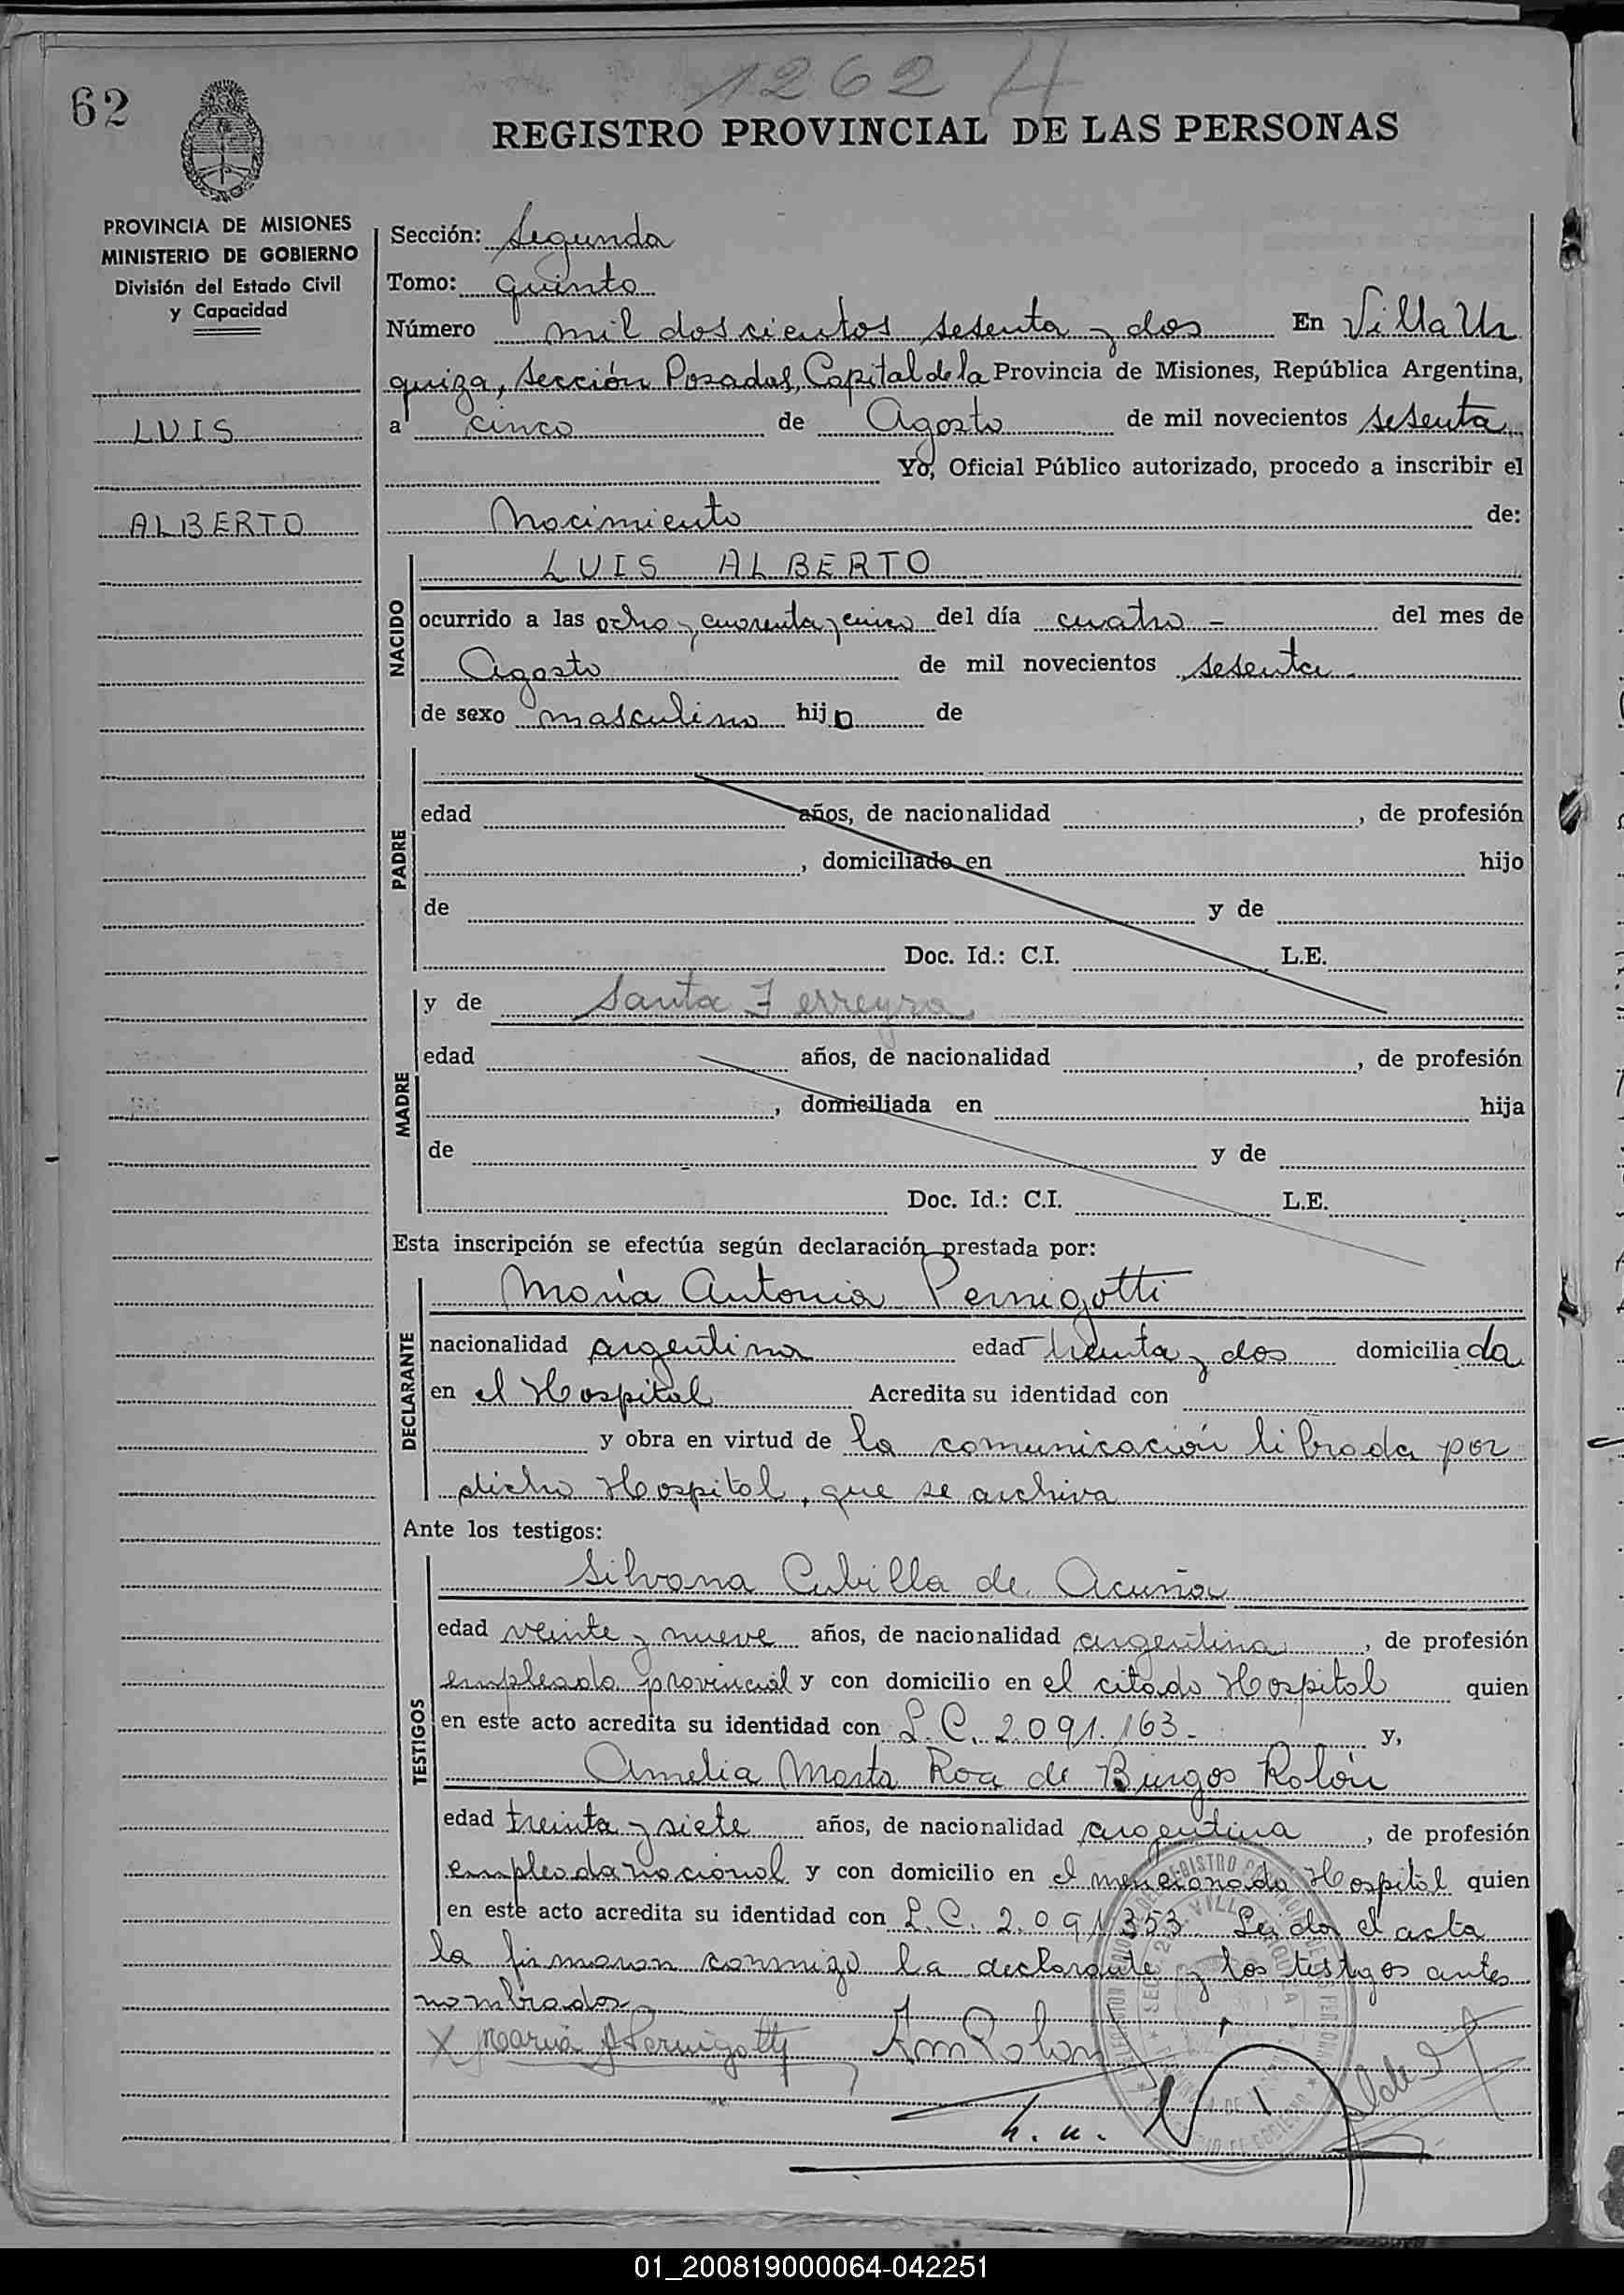 1262 H
62
REGISTRO PROVINCIAL DE LAS PERSONAS
PROVINCIA DE MISIONES
MINISTERIO DE GOBIERNO
División del Estado Civil
y Capacidad
LUIS
ALBERTO
Sección: Segunda
Tomo: quinto
Número mil doscientos sesenta y dos En Villa Ur
quiza, Sección Posadas, Capital de la Provincia de Misiones, República Argentina,
a cinco de Agosto de mil novecientos sesenta
Yo, Oficial Público autorizado, procedo a inscribir el
Nacimiento de:
NACIDO
LUIS ALBERTO
ocurrido a las ocho y cuarenta y cinco del día cuatro - del mes de
Agosto de mil novecientos sesenta -
de sexo masculino hijo de
PADRE
edad años, de nacionalidad , de profesión
, domiciliado en hijo
de y de
Doc. Id.: C.I. L.E.
MADRE
y de Santa Ferreyra
edad años, de nacionalidad , de profesión
, domiciliada en hija
de y de
Doc. Id.: C.I. L.E.
Esta inscripción se efectúa según declaración prestada por:
DECLARANTE
María Antonia Pernigotti
nacionalidad argentina edad treinta y dos domiciliada
en el Hospital Acredita su identidad con
y obra en virtud de la comunicación librada por
dicho Hospital, que se archiva
Ante los testigos:
TESTIGOS
Silvana Cubilla de Acuña
edad veinte y nueve años, de nacionalidad argentina, de profesión
empleada provincial y con domicilio en el citado Hospital quien
en este acto acredita su identidad con L.C. 2.091.163.- y,
Amelia Marta Roa de Burgos Rolón
edad treinta y siete años, de nacionalidad argentina, de profesión
empleada nacional y con domicilio en el mencionado Hospital quien
en este acto acredita su identidad con L.C. 2.091353. Leida el acta
la firmaron conmigo la declarante y los testigos antes
nombrados
X Maria A Pernigotty
01_200819000064-042251